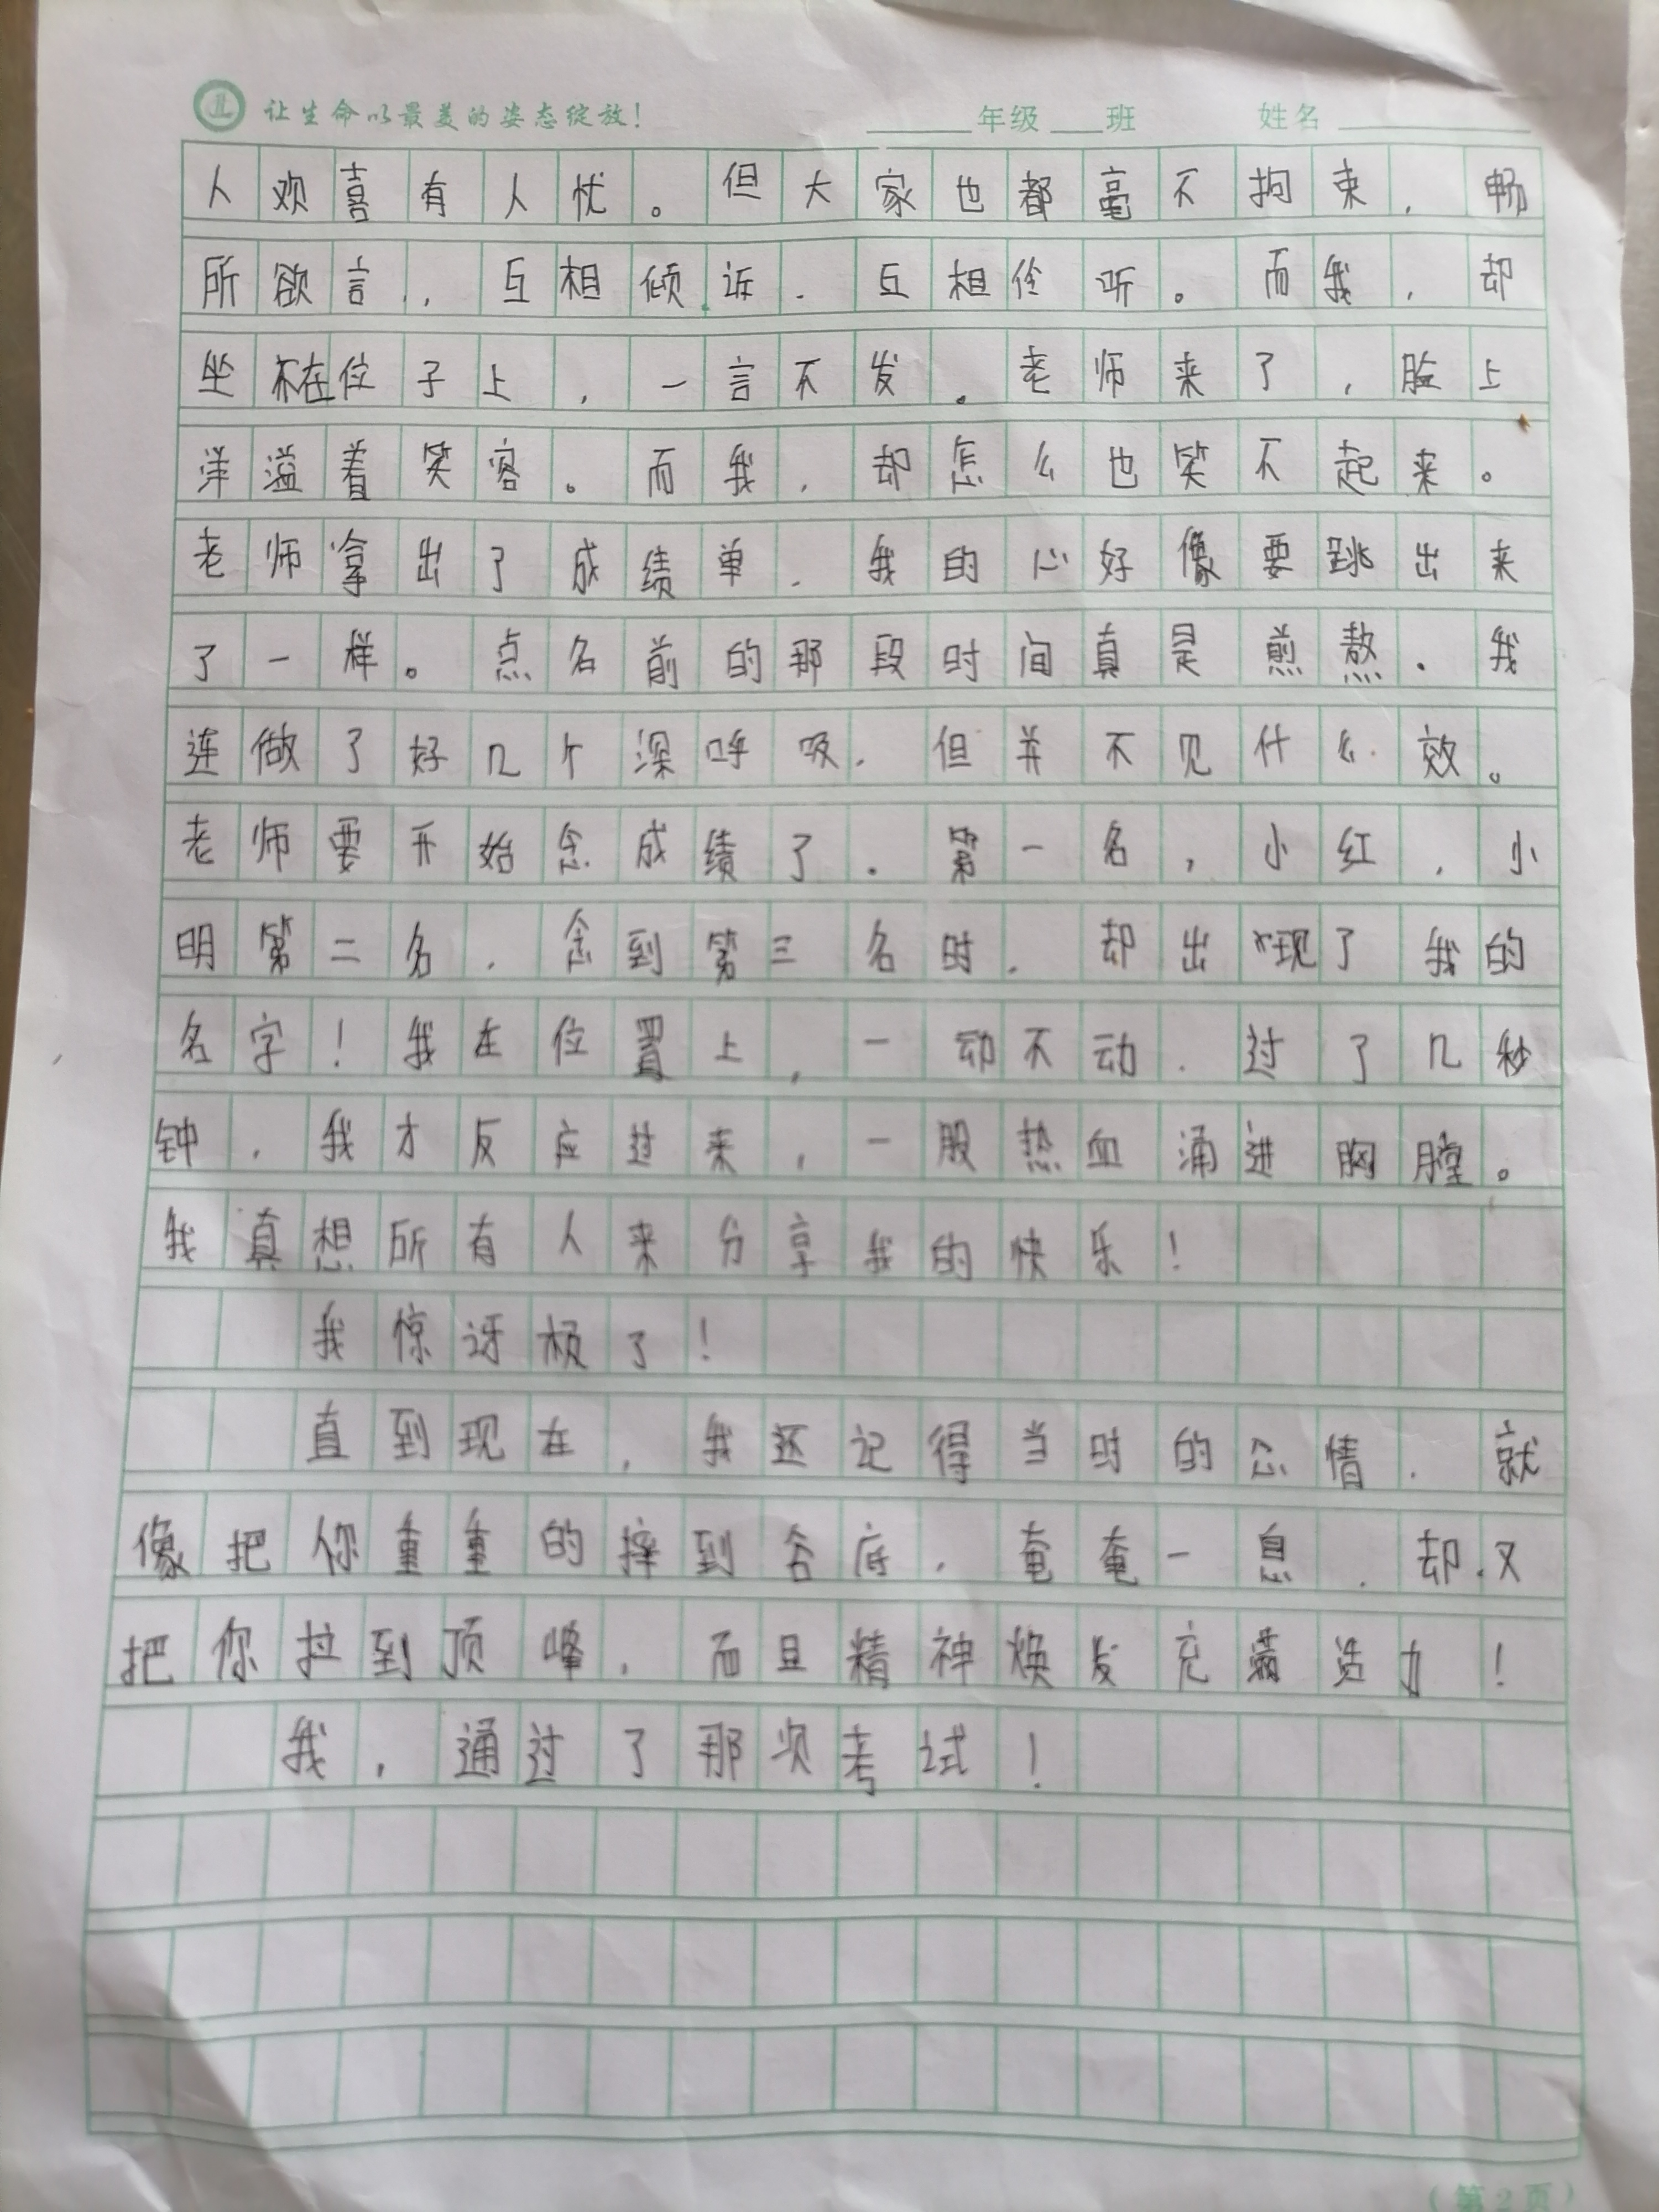 让生命以最美的姿态绽放！ ______年级___班 姓名___________
人欢喜有人忧。但大家也都毫不拘束，畅
所欲言，互相倾诉，互相伶听。而我，却
坐在位子上，一言不发。老师来了，脸上
洋溢着笑容。而我，却怎么也笑不起来。
老师拿出了成绩单，我的心好像要跳出来
了一样。点名前的那段时间真是煎熬。我
连做了好几个深呼吸，但并不见什么效。
老师要开始念成绩了。第一名，小红，小
明第二名，念到第三名时，却出现了我的
名字！我在位置上，一动不动。过了几秒
钟，我才反应过来，一股热血涌进胸膛。
我真想所有人来分享我的快乐！
我惊讶极了！
直到现在，我还记得当时的心情，就
像把你重重的摔到谷底，奄奄一息，却又
把你拉到顶峰，而且精神焕发充满活力！
我，通过了那次考试！
（第2页）